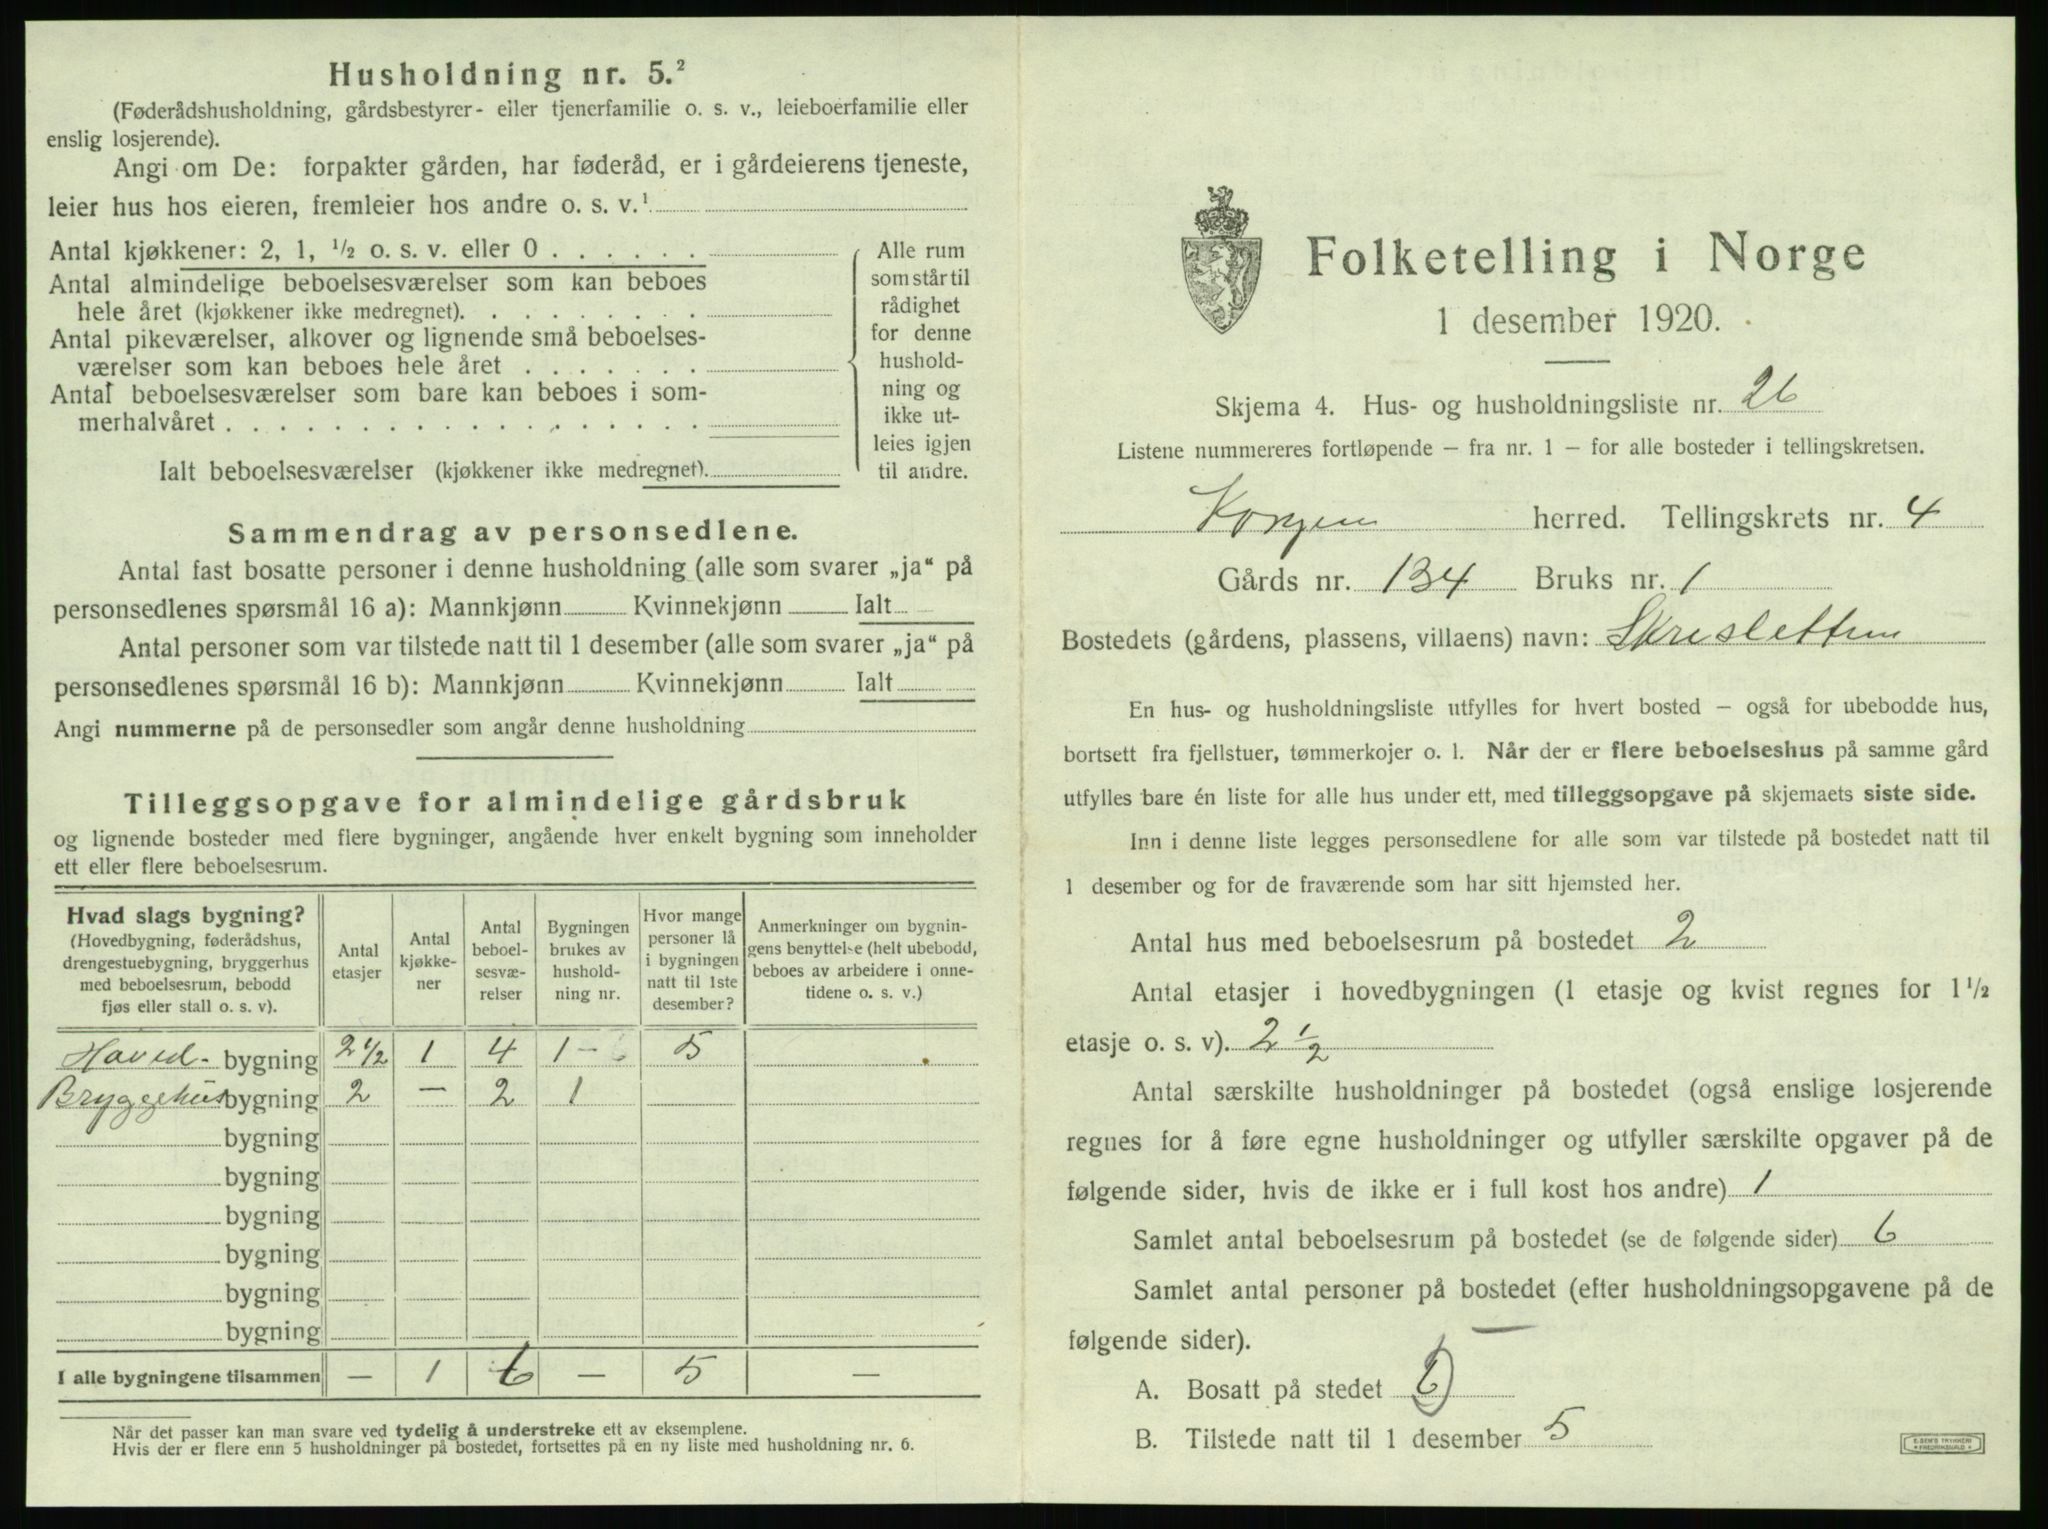 Husholdning nr. 5.²
(Føderådshusholdning, gårdsbestyrer- eller tjenerfamilie o. s. v., leieboerfamilie eller
enslig losjerende).
Angi om De: forpakter gården, har føderåd, er i gårdeierens tjeneste,
leier hus hos eieren, fremleier hos andre o. s. v.¹
Antal kjøkkener: 2, 1, ½ o. s. v. eller 0 . . . . . .
Antal almindelige beboelsesværelser som kan beboes
hele året (kjøkkener ikke medregnet). . . . . . . . .
Antal pikeværelser, alkover og lignende små beboelses-
værelser som kan beboes hele året . . . . . . .
Antal beboelsesværelser som bare kan beboes i som-
merhalvåret . . . . . . . . . . . . . . . . . .
Ialt beboelsesværelser (kjøkkener ikke medregnet).
Alle rum
som står til
rådighet
for denne
hushold-
ning og
ikke ut-
leies igjen
til andre.
Sammendrag av personsedlene.
Antal fast bosatte personer i denne husholdning (alle som svarer „ja“ på
personsedlenes spørsmål 16 a): Mannkjønn Kvinnekjønn Ialt
Antal personer som var tilstede natt til 1 desember (alle som svarer „ja“ på
personsedlenes spørsmål 16 b): Mannkjønn Kvinnekjønn Ialt
Angi nummerne på de personsedler som angår denne husholdning
Tilleggsopgave for almindelige gårdsbruk
og lignende bosteder med flere bygninger, angående hver enkelt bygning som inneholder
ett eller flere beboelsesrum.
Hvad slags bygning?
(Hovedbygning, føderådshus,
drengestuebygning, bryggerhus
med beboelsesrum, bebodd
fjøs eller stall o. s. v).
Antal
etasjer
Antal
kjøkke-
ner
Antal
beboel-
sesvæ-
relser
Bygningen
brukes av
hushold-
ning nr.
Hvor mange
personer lå
i bygningen
natt til 1ste
desember?
Anmerkninger om bygnin-
gens benyttelse (helt ubebodd,
beboes av arbeidere i onne-
tidene o. s. v.)
Hoved- bygning 2 1/2 1 4 1 - 5
Bryggehus bygning 2 — 2 1
bygning
bygning
bygning
bygning
bygning
bygning
I alle bygningene tilsammen — 1 6 — 5 —
Når det passer kan man svare ved tydelig å understreke ett av eksemplene.
Hvis der er flere enn 5 husholdninger på bostedet, fortsettes på en ny liste med husholdning nr. 6.
Folketelling i Norge
1 desember 1920.
Skjema 4. Hus- og husholdningsliste nr. 26
Listene nummereres fortløpende – fra nr. 1 – for alle bosteder i tellingskretsen.
Korgen herred. Tellingskrets nr. 4
Gårds nr. 134 Bruks nr. 1
Bostedets (gårdens, plassens, villaens) navn: Skresletten
En hus- og husholdningsliste utfylles for hvert bosted – også for ubebodde hus,
bortsett fra fjellstuer, tømmerkojer o. l. Når der er flere beboelseshus på samme gård
utfylles bare én liste for alle hus under ett, med tilleggsopgave på skjemaets siste side.
Inn i denne liste legges personsedlene for alle som var tilstede på bostedet natt til
1 desember og for de fraværende som har sitt hjemsted her.
Antal hus med beboelsesrum på bostedet 2
Antal etasjer i hovedbygningen (1 etasje og kvist regnes for 1½
etasje o. s. v). 2 1/2
Antal særskilte husholdninger på bostedet (også enslige losjerende
regnes for å føre egne husholdninger og utfyller særskilte opgaver på de
følgende sider, hvis de ikke er i full kost hos andre) 1
Samlet antal beboelsesrum på bostedet (se de følgende sider) 6
Samlet antal personer på bostedet (efter husholdningsopgavene på de
følgende sider).
A. Bosatt på stedet
B. Tilstede natt til 1 desember 5